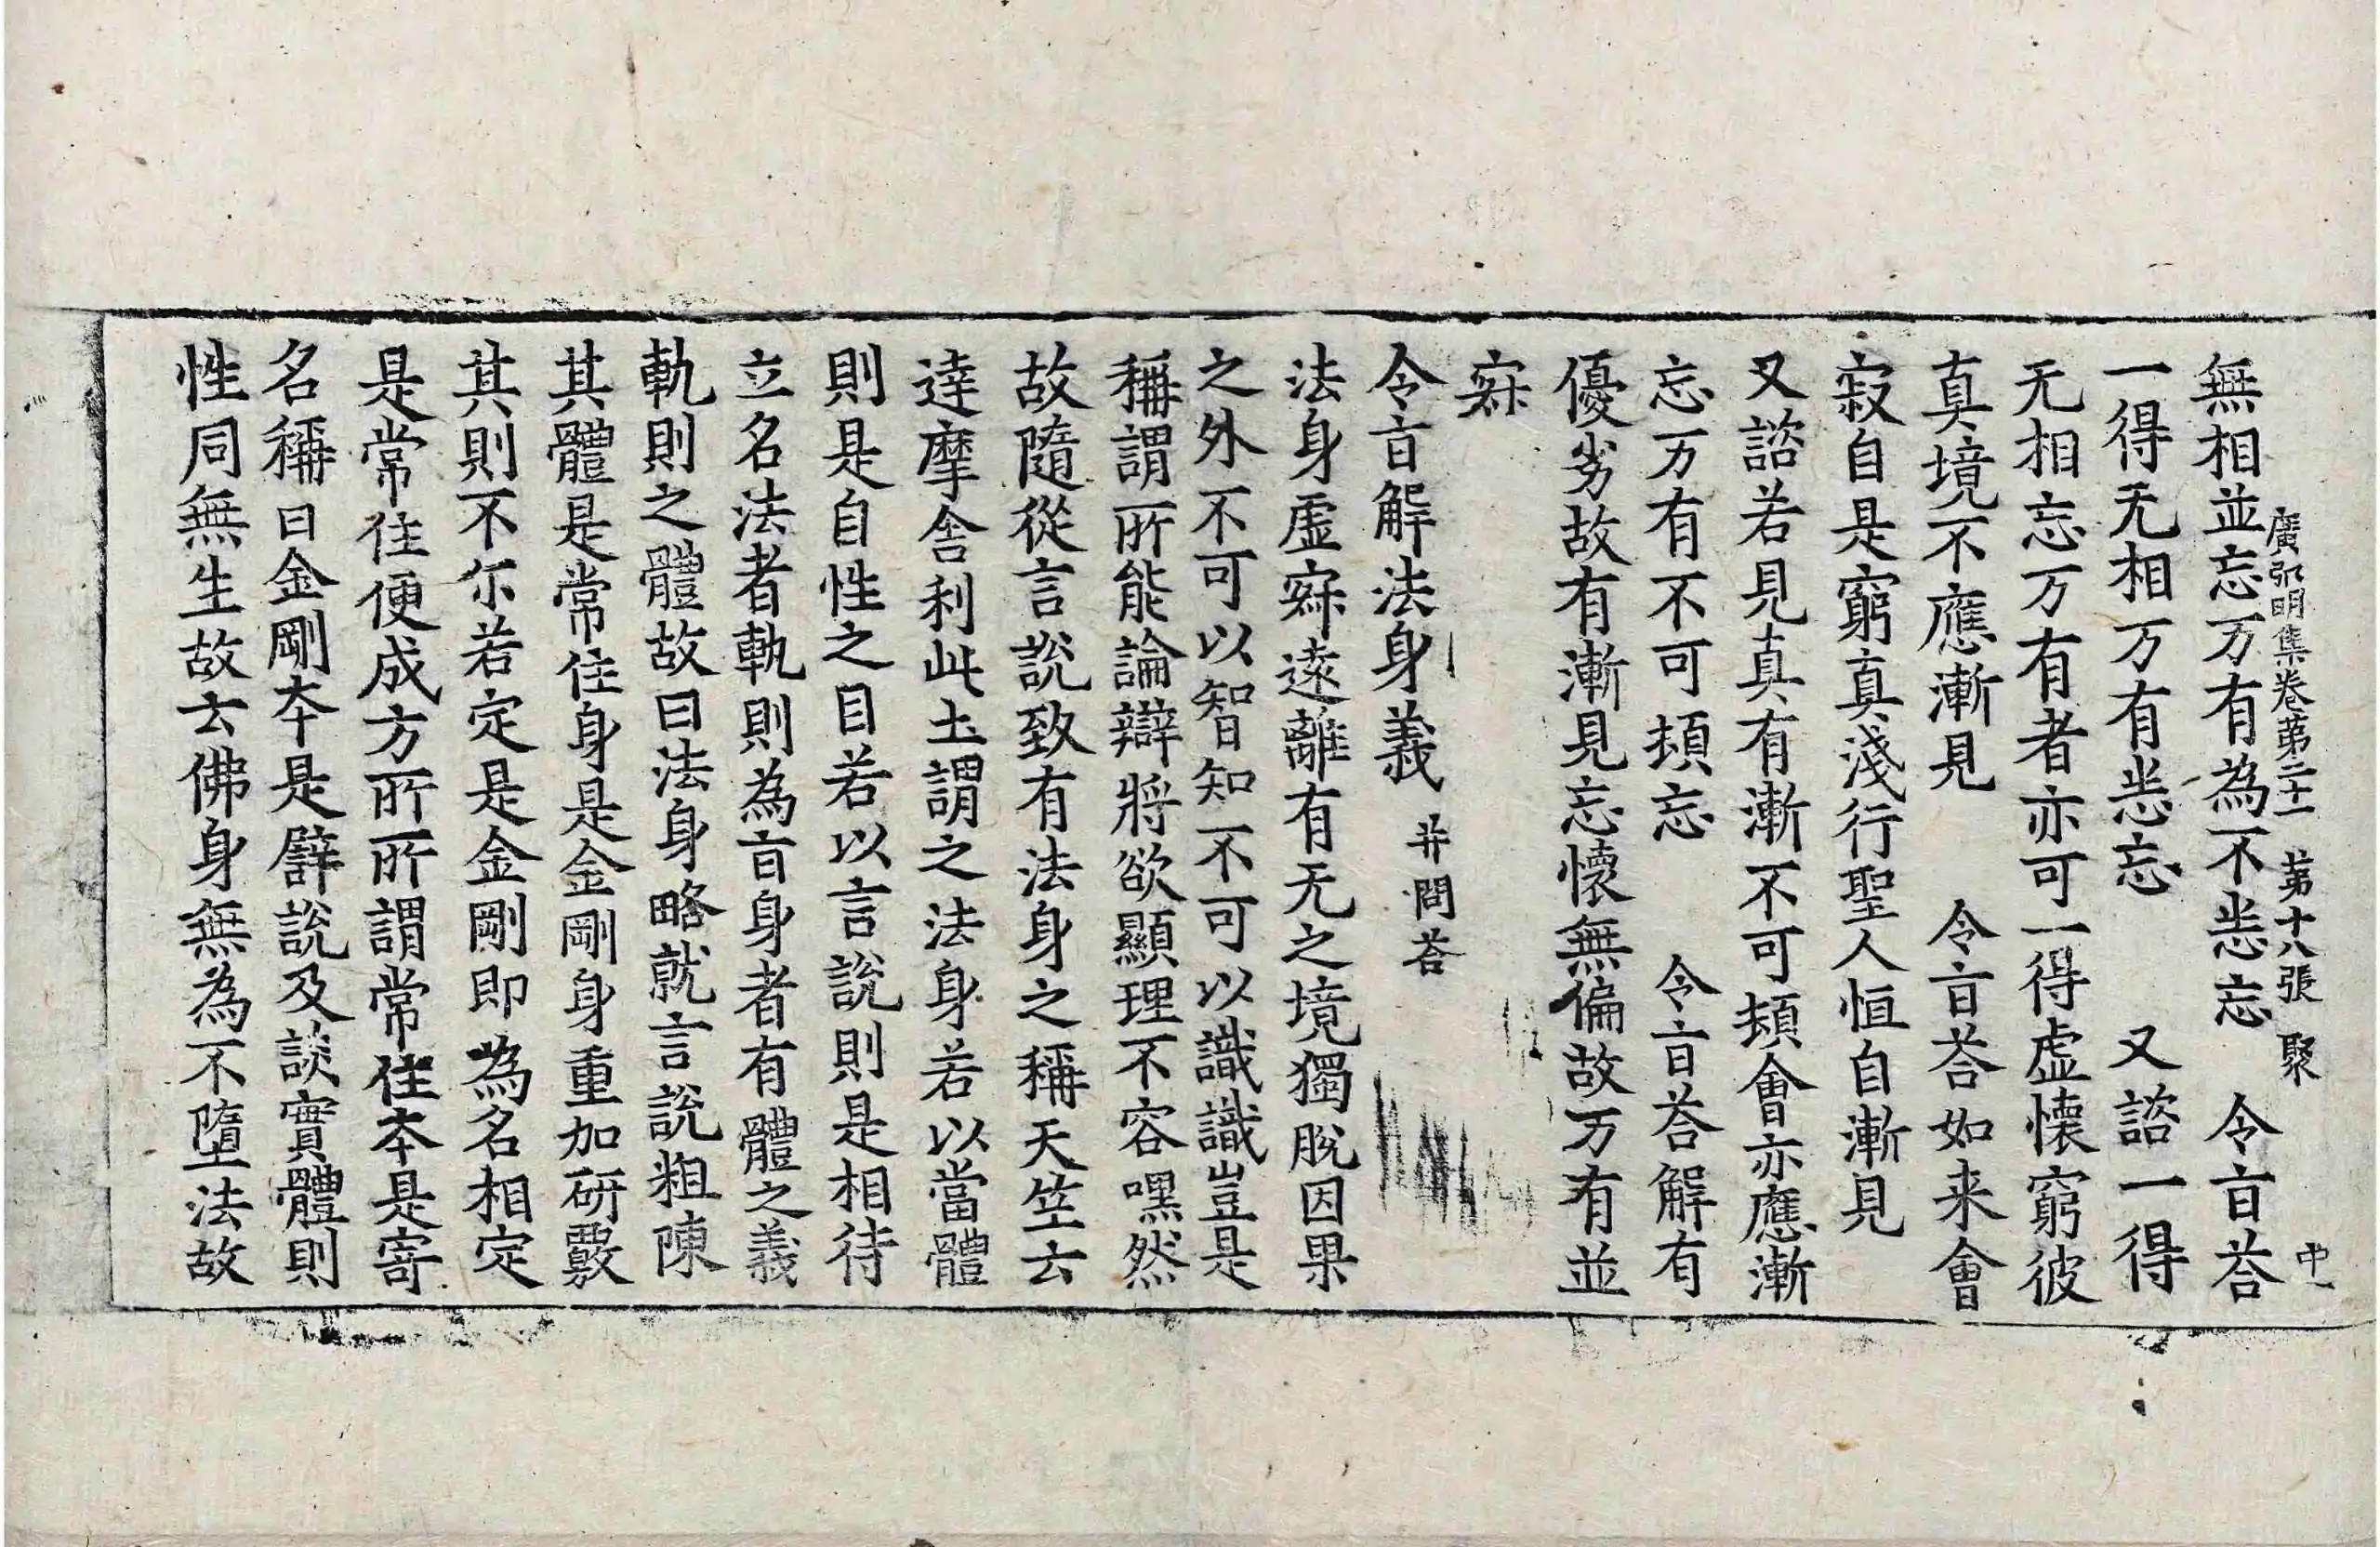 廣弘明集卷第二十一 第十八張 聚 中一
無相並忘万有為不悉忘 令旨荅
一得无相万有悉忘 又諮一得
无相忘万有者亦可一得虛懷窮彼
真境不應漸見 令旨荅如来會
寂自是窮真淺行聖人恒自漸見
又諮若見真有漸不可頓會亦應漸
忘万有不可頓忘 令旨荅解有
優劣故有漸見忘懷無偏故万有並
寂
令旨解法身義 并問荅
法身虛寂遠離有无之境獨脫因果
之外不可以智知不可以識識豈是
稱謂所能論辯將欲顯理不容嘿然
故隨從言說致有法身之稱天竺云
達摩舍利此土謂之法身若以當體
則是自性之目若以言說則是相待
立名法者軌則為旨身者有體之義
軌則之體故曰法身略就言說粗陳
其體是常住身是金剛身重加研覈
其則不尓若定是金剛即為名相定
是常住便成方所所謂常住本是寄
名稱曰金剛本是譬說及談實體則
性同無生故云佛身無為不墮法故